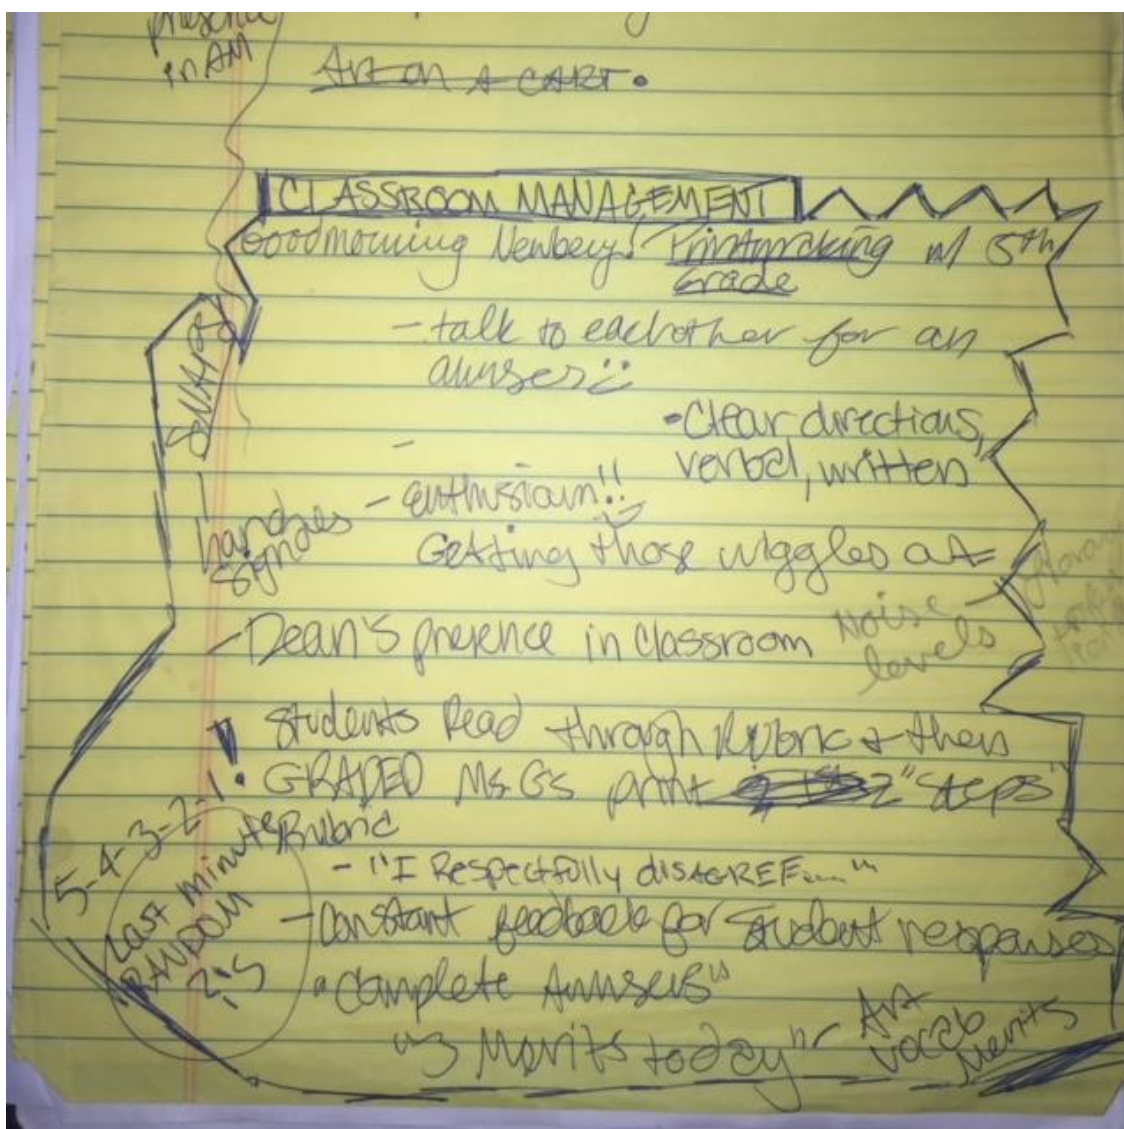 presence
in AM
Art on A CART.
CLASSROOM MANAGEMENT
Goodmorning Newbery! Printmaking w/ 5th
Grade
- talk to eachother for an
answer
SNAPS
• Clear directions,
verbal, written
-
- enthusiasm!!
hand
signals
Getting those wiggles out
- Dean's presence in classroom
Noise
levels
! Students Read through Rubric & then
GRADED Ms Gs print 2 "steps"
Rubric
5-4-3-2-1
- "I Respectfully disAGREE...."
Last minute
RANDOM
?'s
- Constant feedback for student responses
"Complete Answers"
"3 Merits today"
Art
vocab
Merits